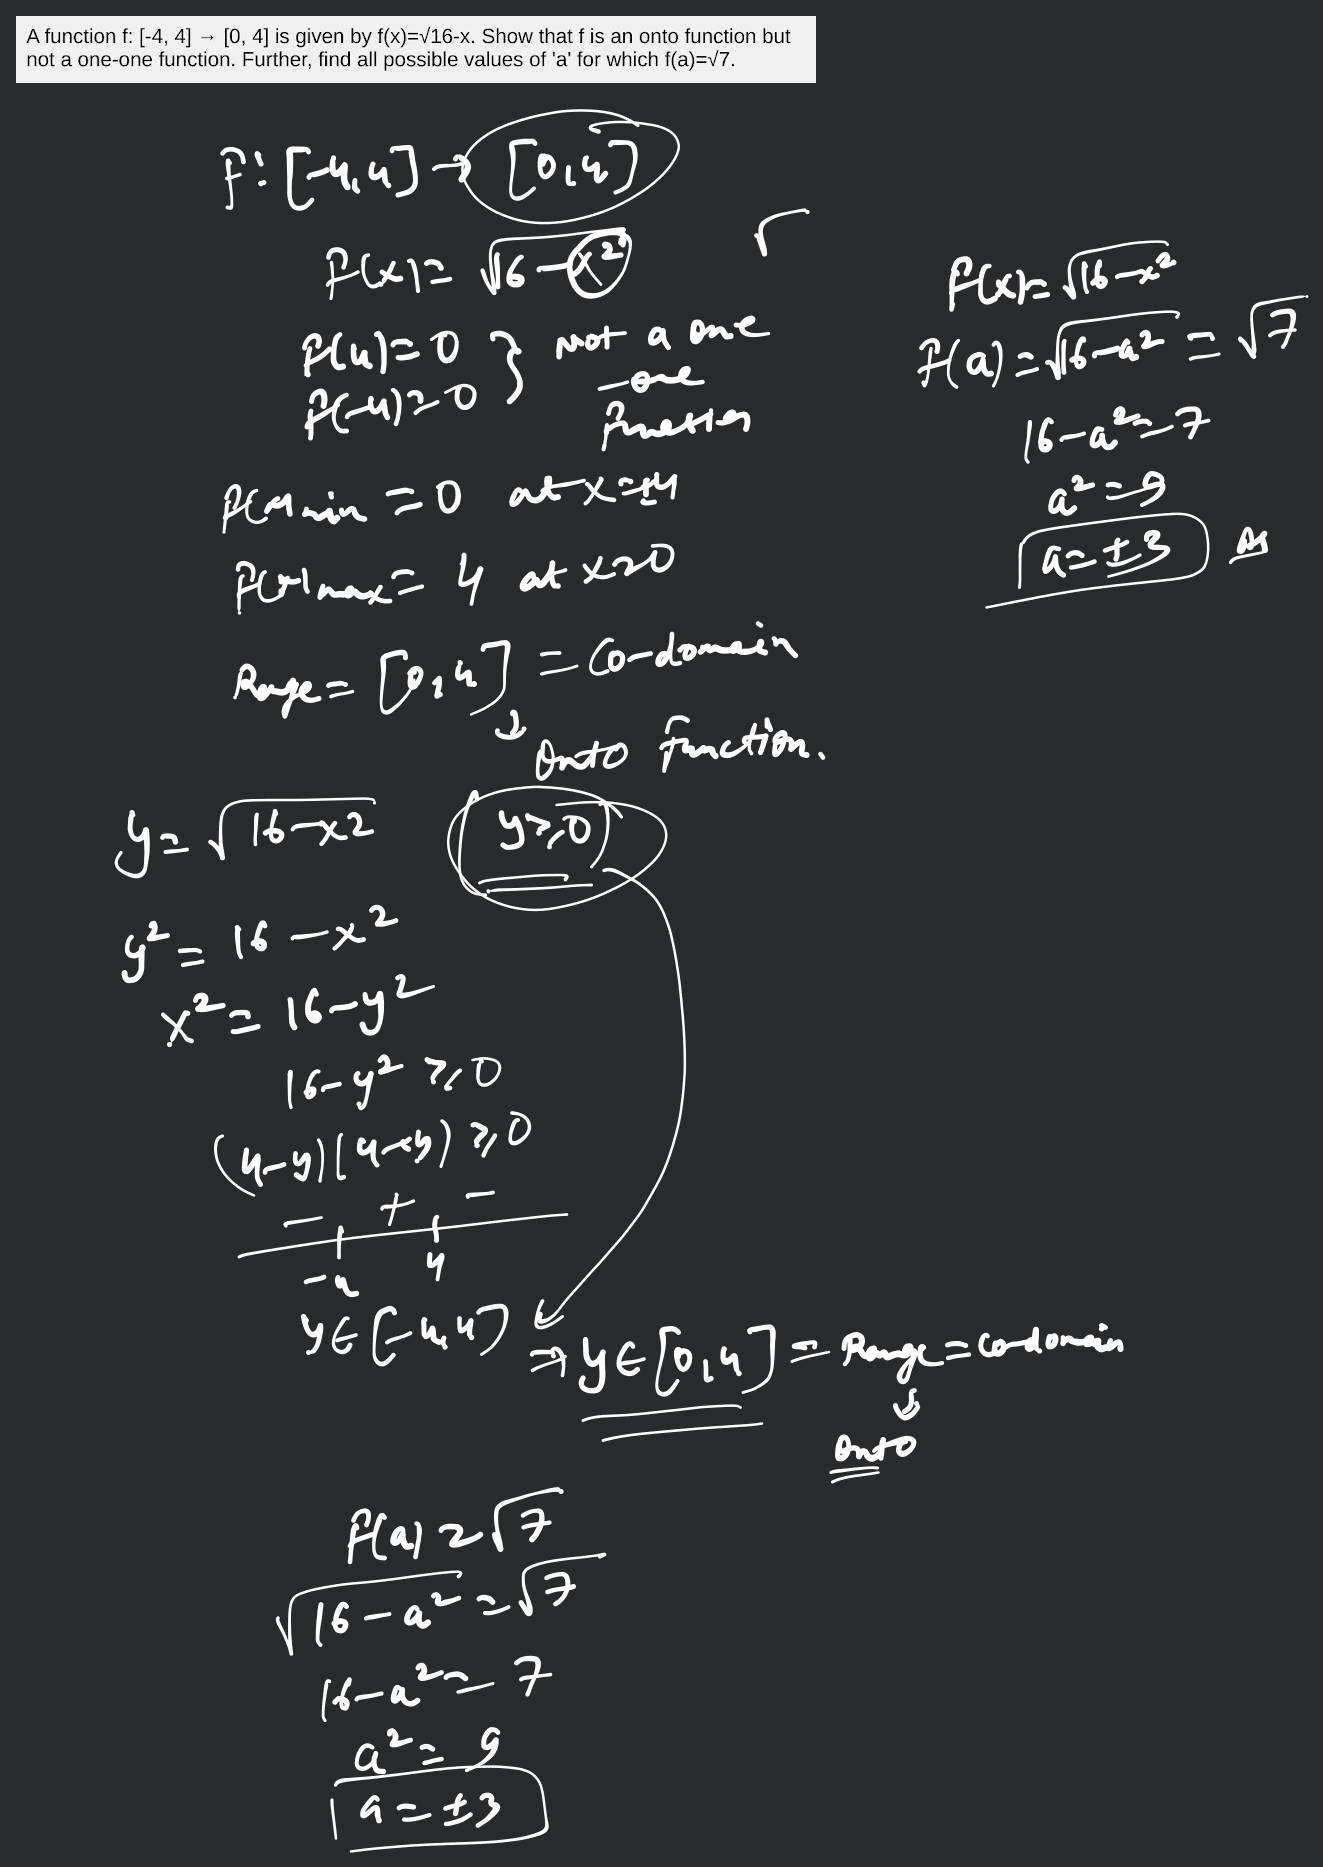 A function f: [-4, 4] → [0, 4] is given by f(x)=√16-x. Show that f is an onto function but
not a one-one function. Further, find all possible values of 'a' for which f(a)=√7.
f: [-4,4] → [0,4]
f(x) = √16-x²
√
f(4) = 0
f(-4) = 0
} not a one
-one
function
f(x)min = 0 at x=±4
f(x)max = 4 at x=0
Range = [0,4] = Co-domain
↓
Onto Function.
f(x) = √16-x²
f(a) = √16-a² = √7
16-a² = 7
a² = 9
a = ±3 As
y = √16-x2 y≥0
y² = 16-x²
x² = 16-y²
16-y² ≥ 0
(4-y)(4+y) ≥ 0
- + -
-4 4
y∈[-4,4] ⇒ y∈[0,4] = Range = Co-domain
↓
Onto
f(a) = √7
√16-a² = √7
16-a² = 7
a² = 9
a = ±3